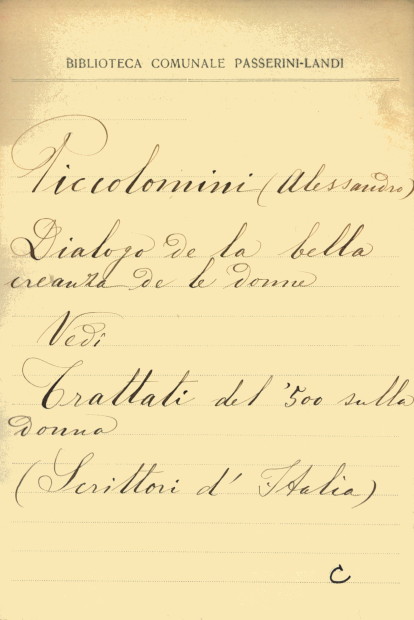 BIBLIOTECA COMUNALE PASSERINI-LANDI
Piccolomini (Alessandro)
Dialogo de la bella
creanza de le donne
Vedi
Trattati del '500 sulla
donna
(Scrittori d' Italia)
C